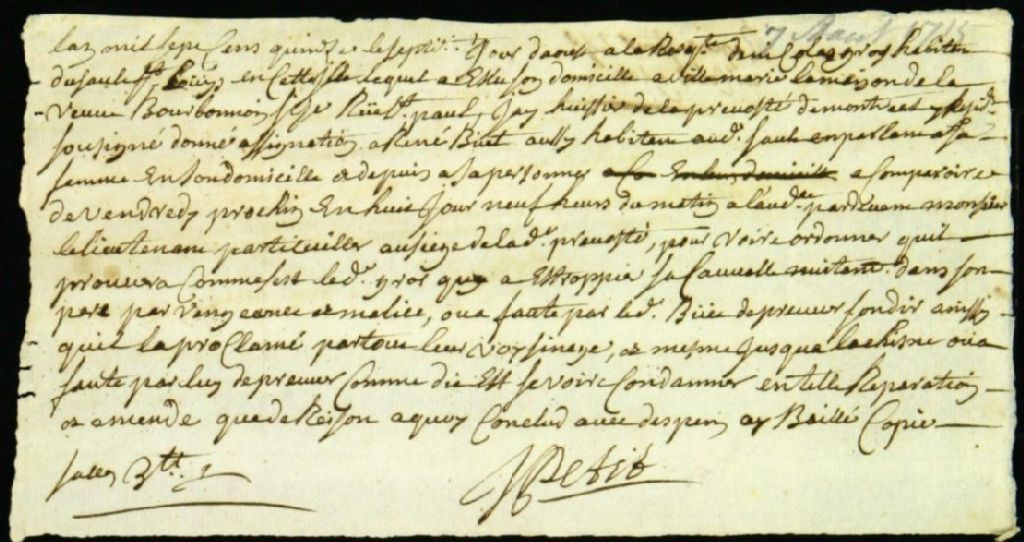 7 Aoust 1715
Lan mil sept Cens quinze le septie. Jour daoust a la Requte. de Colas gros habitan
du sault St. Louis en Cette Isle lequel a Eslu son domicille a ville marie la maison de la
Veuve Bourbonnois Je Huissier de la prevosté de montreal
sousigné donné assignation a René Buet aussy habitant aud. sault en parlant a sa
femme En son domicille a Comparoir
de vendredy prochin En huit Jour neuf heurs du matin a laudce. pardevant monsieur
le lieutenant particullier au siege de lad. prevosté, pour voire ordonner quil
prouvera Comme led. gros a Estroppié sa Cavalle dans son
par vengeance et malice, ou a faute par led. Büet de preuver
quil la proClamé partout leur voysinage, et mesme Jusqua lachisne ou a
faute par luy de preuver Comme dit Est se voire Condamner en telle Reparation
et amende que de Reison a quoy Conclud avec despens ay Baillé Copie
JPetit